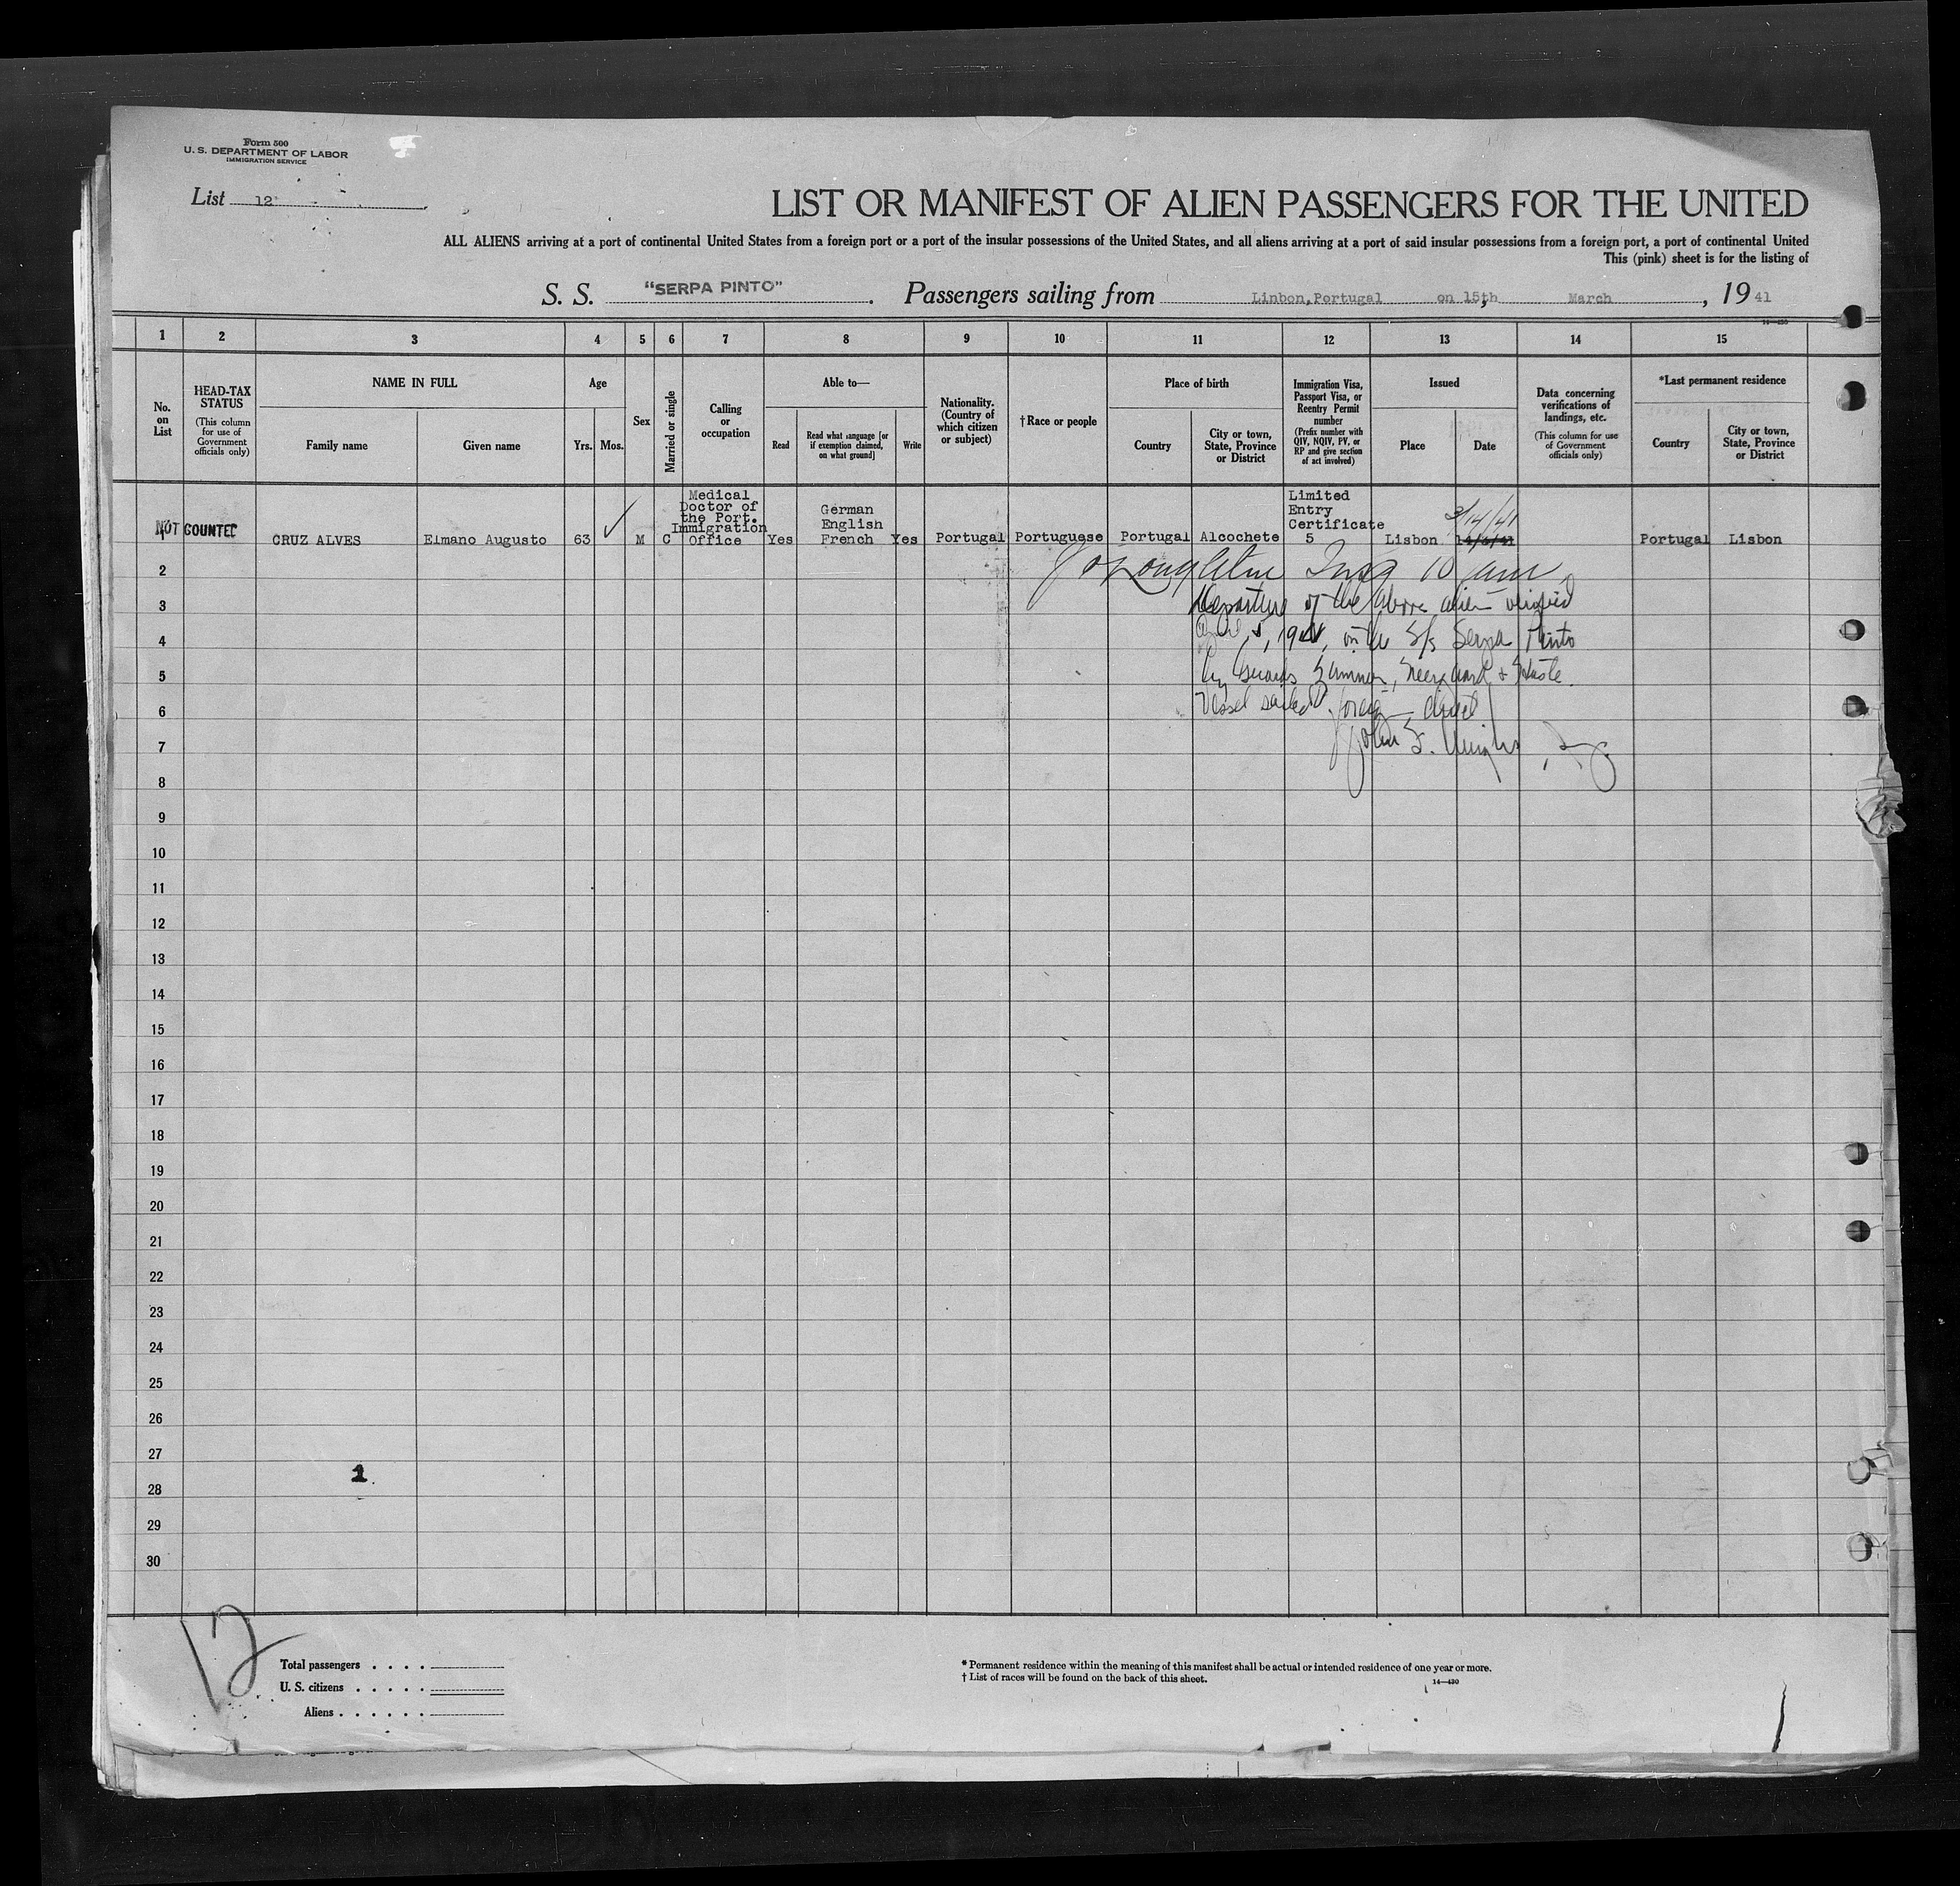 Form 500
U. S. DEPARTMENT OF LABOR
IMMIGRATION SERVICE
List 12
LIST OR MANIFEST OF ALIEN PASSENGERS FOR THE UNITED
ALL ALIENS arriving at a port of continental United States from a foreign port or a port of the insular possessions of the United States, and all aliens arriving at a port of said insular possessions from a foreign port, a port of continental United
This (pink) sheet is for the listing of
S. S. "SERPA PINTO". Passengers sailing from Linbon,Portugal on 15th, March, 1941
1 2 3 4 5 6 7 8 9 10 11 12 13 14 15
No. on List
HEAD-TAX STATUS
(This column for use of Government officials only)
NAME IN FULL
Family name
Given name
Age
Yrs. Mos.
Sex
Married or single
Calling or occupation
Able to—
Read
Read what language [or if exemption claimed, on what ground]
Write
Nationality. (Country of which citizen or subject)
†Race or people
Place of birth
Country
City or town, State, Province or District
Immigration Visa, Passport Visa, or Reentry Permit number
(Prefix number with QIV, NQIV, PV, or RP and give section of act involved)
Issued
Place
Date
Data concerning verifications of landings, etc.
(This column for use of Government officials only)
*Last permanent residence
Country
City or town, State, Province or District
NOT COUNTED
CRUZ ALVES Elmano Augusto 63 M C
Medical
Doctor of
the Port.
Immigration
Office
Yes
German
English
French
Yes
Portugal Portuguese Portugal Alcochete
Limited
Entry
Certificate
5
Lisbon
3/14/41
Portugal Lisbon
2
Departure of the above alien verified
3
April 5, 1941, on the S/s Serpa Pinto
4
by Guards
5
Vessel sailed foreign direct
6
John
7
8
9
10
11
12
13
14
15
16
17
18
19
20
21
22
23
24
25
26
27
1
28
29
30
12
Total passengers . . . .
U. S. citizens . . . . .
Aliens . . . . . .
* Permanent residence within the meaning of this manifest shall be actual or intended residence of one year or more.
† List of races will be found on the back of this sheet.
14—430